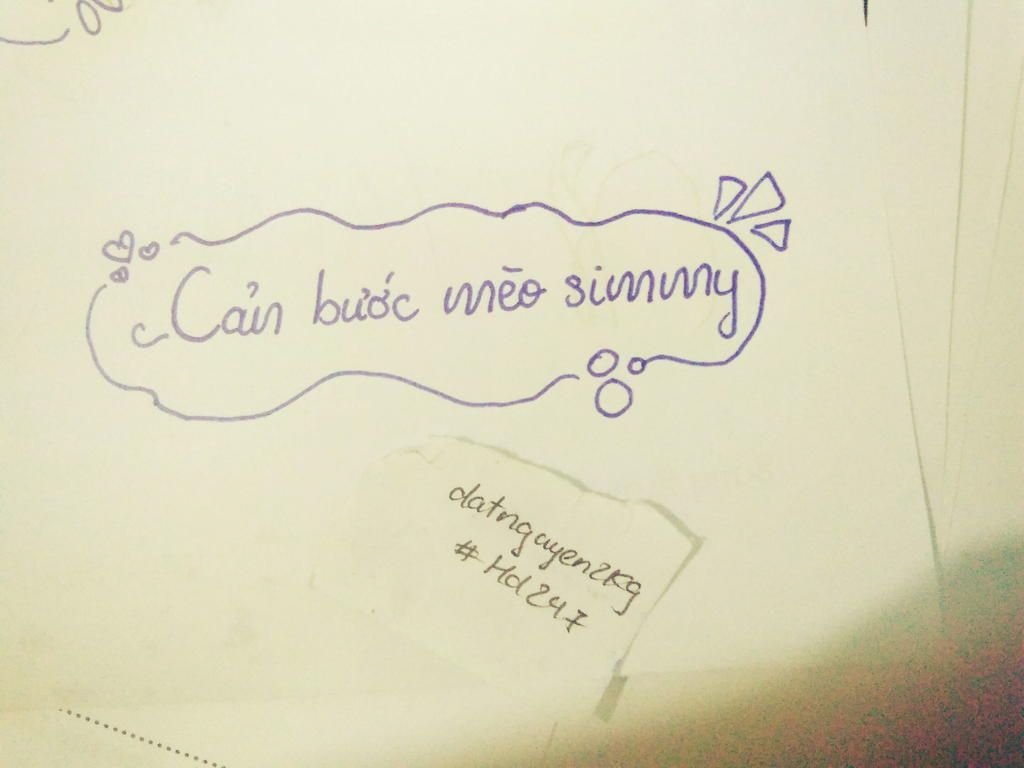 Cản bước mẽo simmy
datnguyen2kg
#Hd247